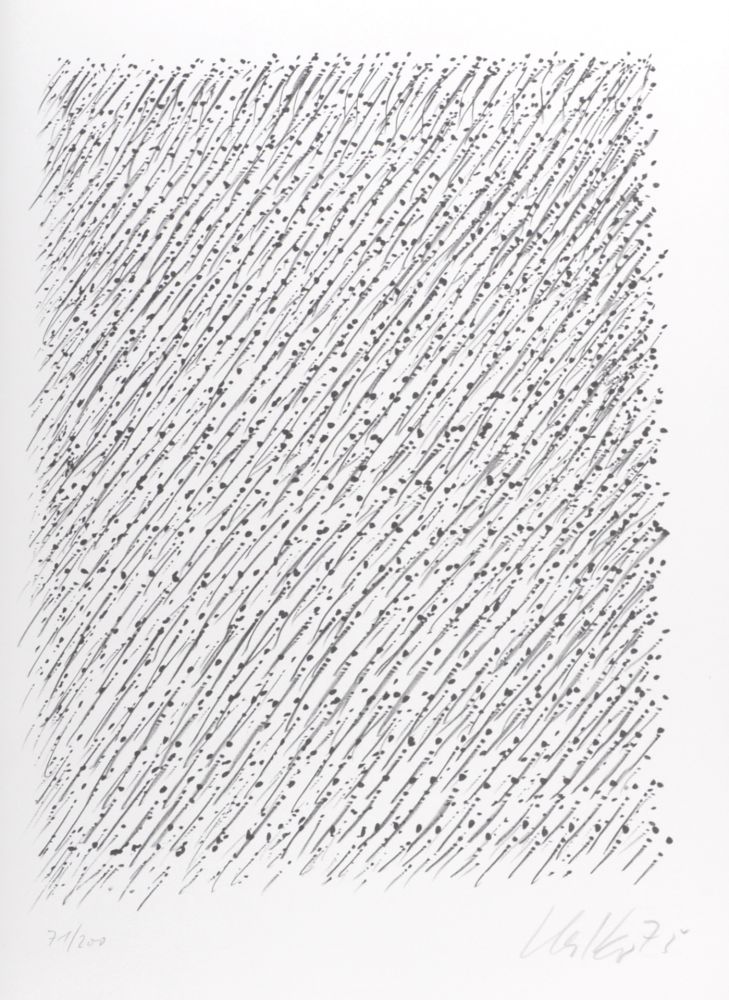 71/200
Uecker 75